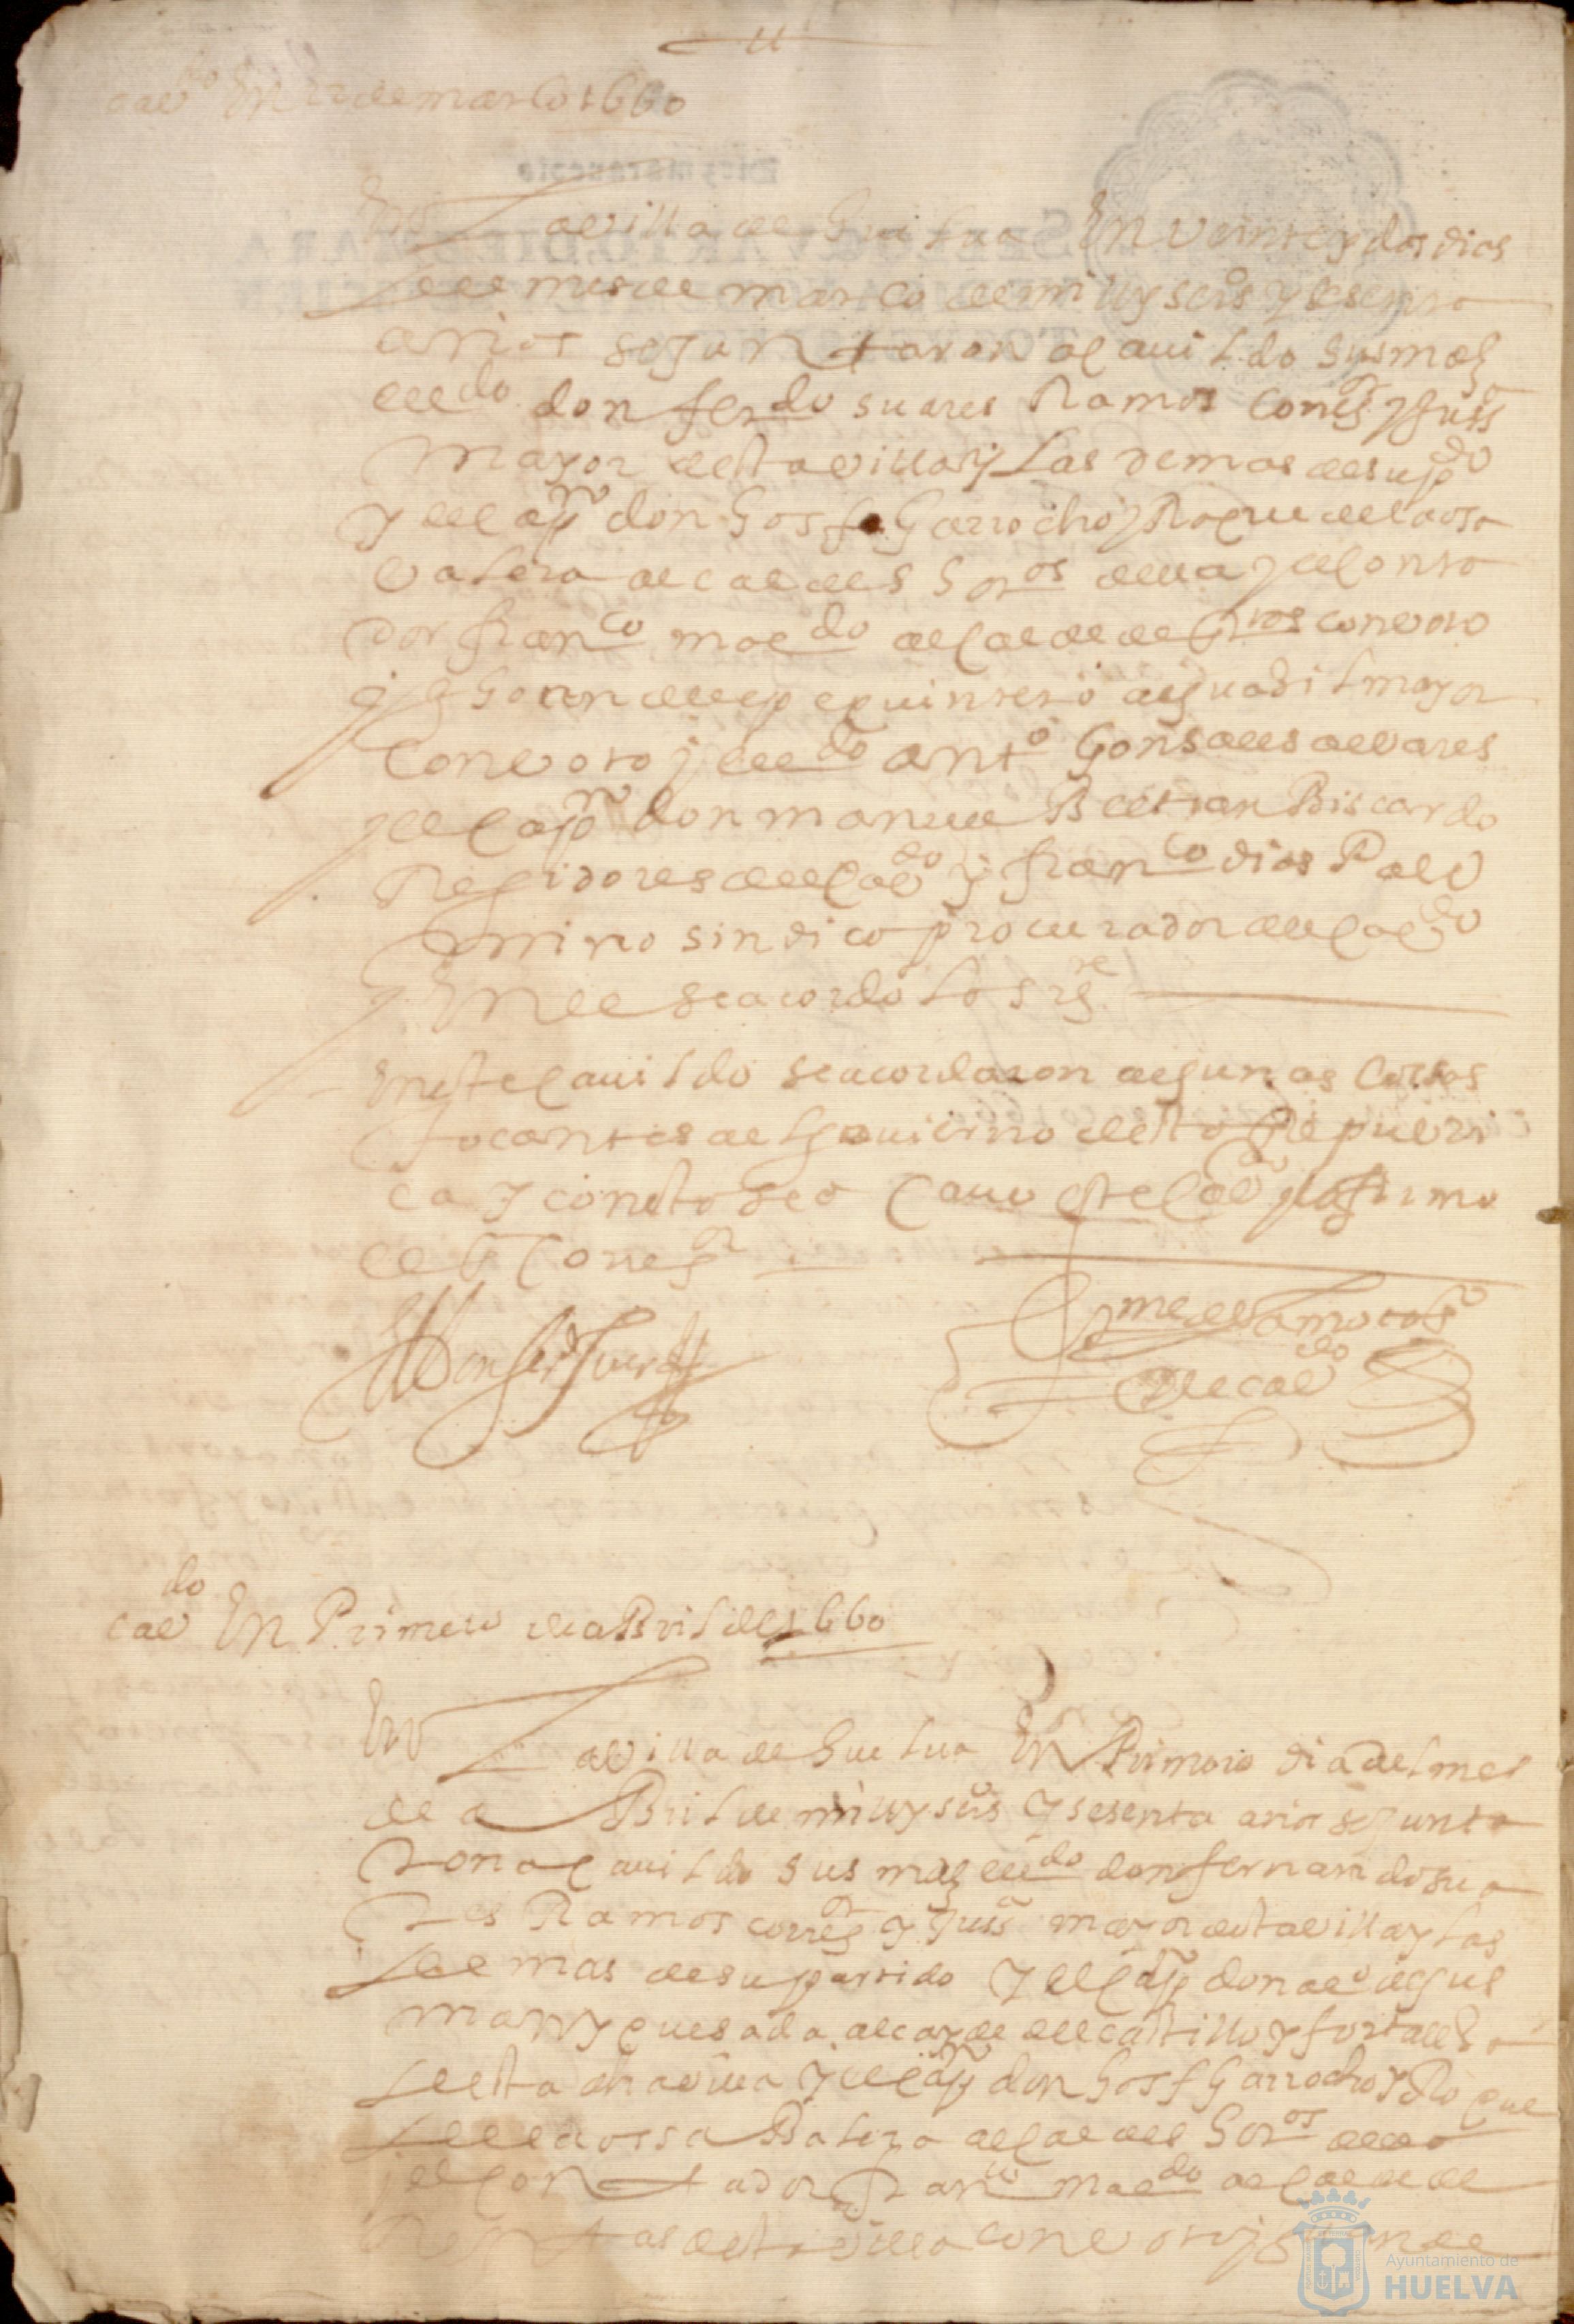 11
cavdo En 22 de março 1660
En La villa de Guelua En veinte y dos dias
del mes de março de mill y seisos y sesenta
años se juntaron a cauildo sus md
lldo don ferdo suares Ramos Corregor y justa
mayor desta villa y las demas de su pdo
y el capn don Gosf Garrocho y Roque de la osa
valera alcaldes Horos della y el conta
dor franco maldo alcalde de con voto
y Goan de quintero alguasil mayor
con voto y lldo Anto Gonsales alvares
y el capn don manuel Beltran Biscardo
Regidores del cavdo y franco dias Pal
omino sindico procurador del cavdo
y En el se acordo lo sigte
En este cauildo se acordaron algunas cossas
tocantes al gouierno desta Republi
ca y con esto se acauo este cavdo y lo firmo
el Sr Corregor
de cavdo
cavdo En Primero de aBril de 1660
En La villa de Guelua En Primero dia del mes
de aBril de mill y seisos y sesenta años se junta
ron a cauildo sus md lldo don fernando sua
res Ramos corregor y justa mayor desta villa y las
demas de su partido y el capn don alo de gus
man y quesada alcayde del castillo y fortalesa
desta dha villa y el capn don Gosf Garrocho y Roque
de la ossa Balera alcaldes Horos della
y el contador franco maldo alcalde de
Rentas desta villa con voto y Goan de
Ayuntamiento de
HUELVA